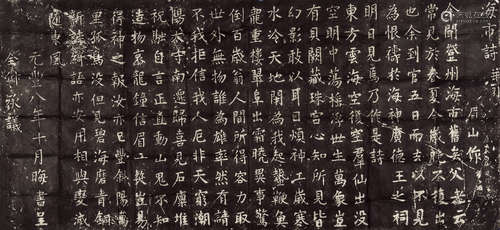 海市詩并引
余聞登州海市舊矣父老云
常見於春夏今歲晚不復出
也余到官五日而去以不見
為恨禱於海神廣德王之祠
明日見焉乃作是詩
東方雲海空復空群仙出沒
空明中蕩搖浮世生萬象豈
有貝闕藏珠宮心知所見皆
幻影敢以耳目煩神工歲寒
水冷天地閉為我起蟄鞭魚
龍重樓翠阜出霜曉異事驚
倒百歲翁人間所得容力取
世外無物誰為雄率然有請
不我拒信我人厄非天窮潮
陽太守南遷歸喜見石廩堆
祝融自言正直動山鬼不知
造物哀龍鍾信眉一笑豈易
得神之報汝亦已豐斜陽萬
里孤鳥沒但見碧海磨青銅
新詩綺語亦安用相與變滅
隨東風
元豐八年十月晦書呈
全叔承議